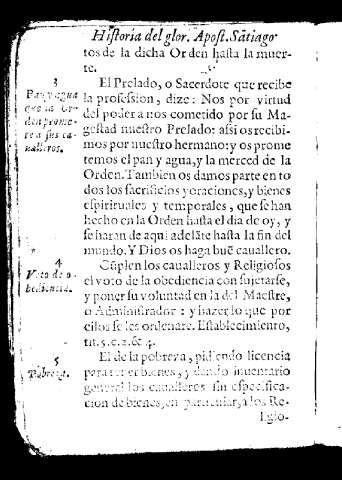 Historia del glor. Apost. Sātiago
tos de la dicha Orden hasta la muer-
te.
3
Pan y agua
que la Or-
den prome-
te a sus ca-
ualleros.
El Prelado, o Sacerdote que recibe
la profession, dize: Nos por virtud
del poder a nos cometido por su Ma-
gestad nuestro Prelado: assi os recibi-
mos por nuestro hermano: y os prome
temos el pan y agua, y la merced de la
Orden. Tambien os damos parte en to
dos los sacrificios y oraciones, y bienes
espirituales y temporales, que se han
hecho en la Orden hasta el dia de oy, y
se haran de aqui adelāte hasta la fin del
mundo. Y Dios os haga buē cauallero.
4
Voto de o-
bediencia.
Cūplen los caualleros y Religiosos
el voto de la obediencia con sujetarse,
y poner su voluntad en la del Maestre,
o Administrador: y hazer lo que por
ellos se les ordenare. Establecimiento,
tit. 5. c. 2. &c 4.
5
Pobreza.
El de la pobreza, pidiendo licencia
para tener bienes, y dando inuentario
general los caualleros sin especifica-
cion de bienes, en particular, a los Re-
ligio-